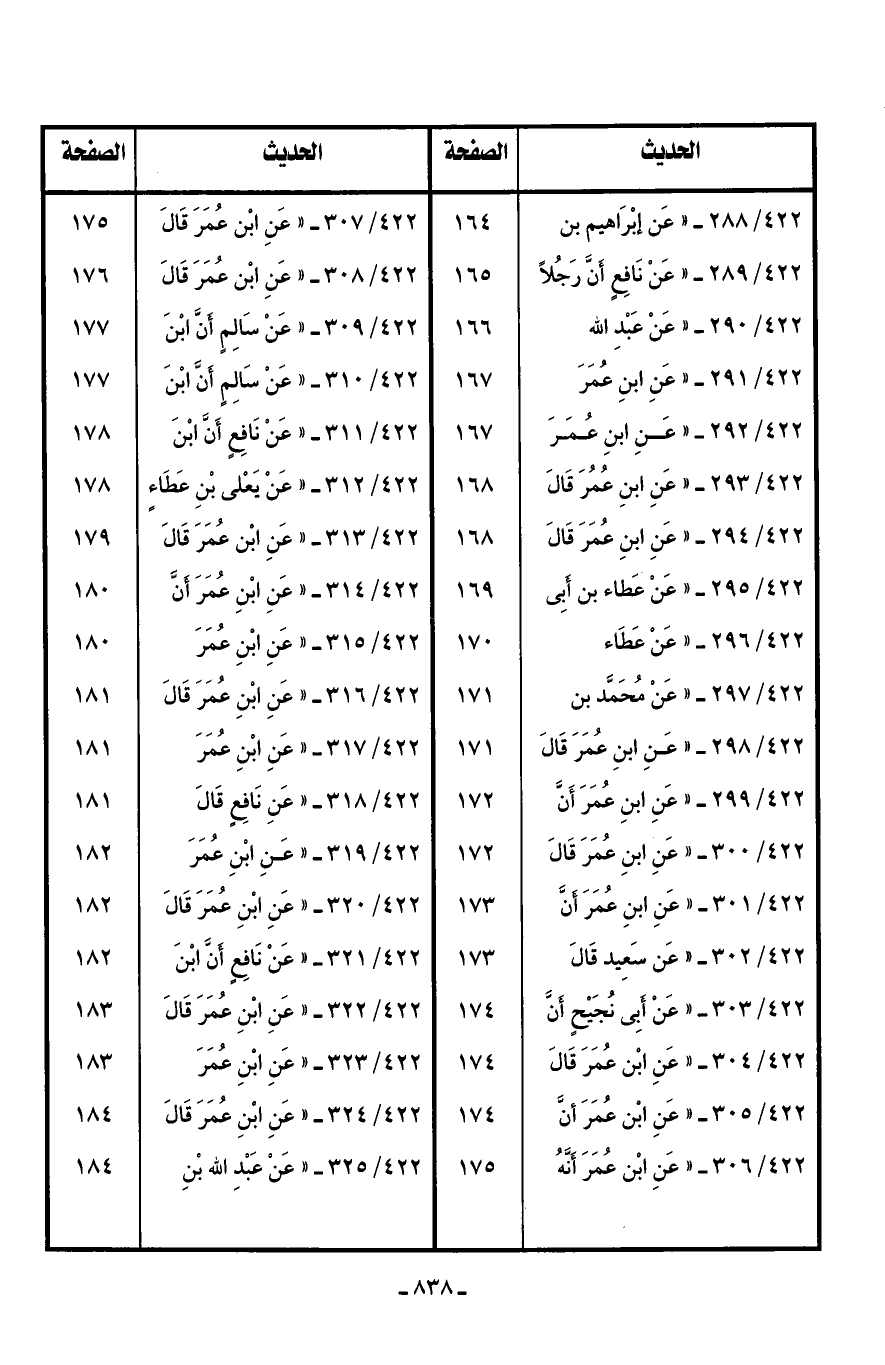 الحديث الصفحة الحديث الصفحة
٤٢٢/ ٢٨٨ ـ « عَن إبْرَاهيم بن ١٦٤ ٤٢٢/ ٣٠٧ ـ « عَنِ ابْن عُمَرَ قَالَ ١٧٥
٤٢٢/ ٢٨٩ ـ « عَنْ نَافِعٍ أَنَّ رَجُلاً ١٦٥ ٤٢٢/ ٣٠٨ ـ « عَنِ ابْنِ عُمَرَ قَالَ ١٧٦
٤٢٢/ ٢٩٠ ـ « عَنْ عَبْدِ الله ١٦٦ ٤٢٢/ ٣٠٩ ـ « عَنْ سَالِمٍ أَنَّ ابْنَ ١٧٧
٤٢٢/ ٢٩١ ـ « عَنِ ابنِ عُمَرَ ١٦٧ ٤٢٢/ ٣١٠ ـ « عَنْ سَالِمٍ أَنَّ ابْنَ ١٧٧
٤٢٢/ ٢٩٢ ـ « عَــنِ ابنِ عُـمَـرَ ١٦٧ ٤٢٢/ ٣١١ ـ « عَنْ نَافِعٍ أَنَّ ابْنَ ١٧٨
٤٢٢/ ٢٩٣ ـ « عَنِ ابنِ عُمُرَ قَالَ ١٦٨ ٤٢٢/ ٣١٢ ـ « عَنْ يَعْلى بْنِ عَطَاءٍ ١٧٨
٤٢٢/ ٢٩٤ ـ « عَنِ ابنِ عُمَرَ قَالَ ١٦٨ ٤٢٢/ ٣١٣ ـ « عَنِ ابْنِ عُمَرَ قَالَ ١٧٩
٤٢٢/ ٢٩٥ ـ « عَنْ عَطاء بن أَبى ١٦٩ ٤٢٢/ ٣١٤ ـ « عَنِ ابْنِ عُمَرَ أَنَّ ١٨٠
٤٢٢/ ٢٩٦ ـ « عَنْ عَطَاء ١٧٠ ٤٢٢/ ٣١٥ ـ « عَنِ ابْنِ عُمَرَ ١٨٠
٤٢٢/ ٢٩٧ ـ « عَنْ مُحَمَّد بن ١٧١ ٤٢٢/ ٣١٦ ـ « عَنِ ابْنِ عُمَرَ قَالَ ١٨١
٤٢٢/ ٢٩٨ ـ « عَـنِ ابنِ عُمَرَ قَالَ ١٧١ ٤٢٢/ ٣١٧ ـ « عَنِ ابْنِ عُمَرَ ١٨١
٤٢٢/ ٢٩٩ ـ « عَنِ ابنِ عُمَرَ أَنَّ ١٧٢ ٤٢٢/ ٣١٨ ـ « عَنِ نَافِعٍ قَالَ ١٨١
٤٢٢/ ٣٠٠ ـ « عَنِ ابنِ عُمَرَ قَالَ ١٧٢ ٤٢٢/ ٣١٩ ـ « عَـنِ ابْنِ عُمَرَ ١٨٢
٤٢٢/ ٣٠١ ـ « عَنِ ابنِ عُمَرَ أَنَّ ١٧٣ ٤٢٢/ ٣٢٠ ـ « عَنِ ابْنِ عُمَرَ قَالَ ١٨٢
٤٢٢/ ٣٠٢ ـ « عَن سَعِيد قَالَ ١٧٣ ٤٢٢/ ٣٢١ ـ « عَنْ نَافِعٍ أَنَّ ابْنَ ١٨٢
٤٢٢/ ٣٠٣ ـ « عَنْ أَبى نُجَيْحٍ أَنَّ ١٧٤ ٤٢٢/ ٣٢٢ ـ « عَنِ ابْنِ عُمَرَ قَالَ ١٨٣
٤٢٢/ ٣٠٤ ـ « عَنِ ابْنِ عُمَرَ قَالَ ١٧٤ ٤٢٢/ ٣٢٣ ـ « عَنِ ابْنِ عُمَرَ ١٨٣
٤٢٢/ ٣٠٥ ـ « عَنِ ابْنِ عُمَرَ أنَّ ١٧٤ ٤٢٢/ ٣٢٤ ـ « عَنِ ابْنِ عُمَرَ قَالَ ١٨٤
٤٢٢/ ٣٠٦ ـ « عَنِ ابْنِ عُمَرَ أَنَّهُ ١٧٥ ٤٢٢/ ٣٢٥ ـ « عَنْ عَبْدِ الله بْنِ ١٨٤
ـ ٨٣٨ ـ